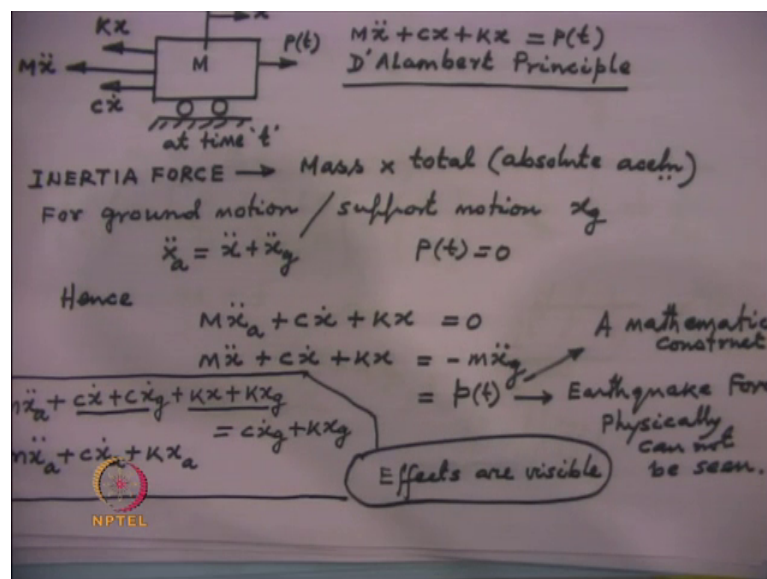 x
Kx
Mẍ
M
P(t)
cẋ
at time 't'
Mẍ + cx + Kx = P(t)
D'Alambert Principle
INERTIA FORCE → Mass x total (absolute aceln)
For ground motion / support motion xg
ẍa = ẍ + ẍg P(t) = 0
Hence
Mẍa + cẋ + Kx = 0
mẍ + cẋ + Kx = - mẍg
= p(t) → Earthquake For
A mathematic
construct
Physically
can not
be seen.
mẍa + cẋ + cẋg + Kx + Kxg
= cẋg + Kxg
mẍa + cẋa + Kxa
Effects are visible
NPTEL